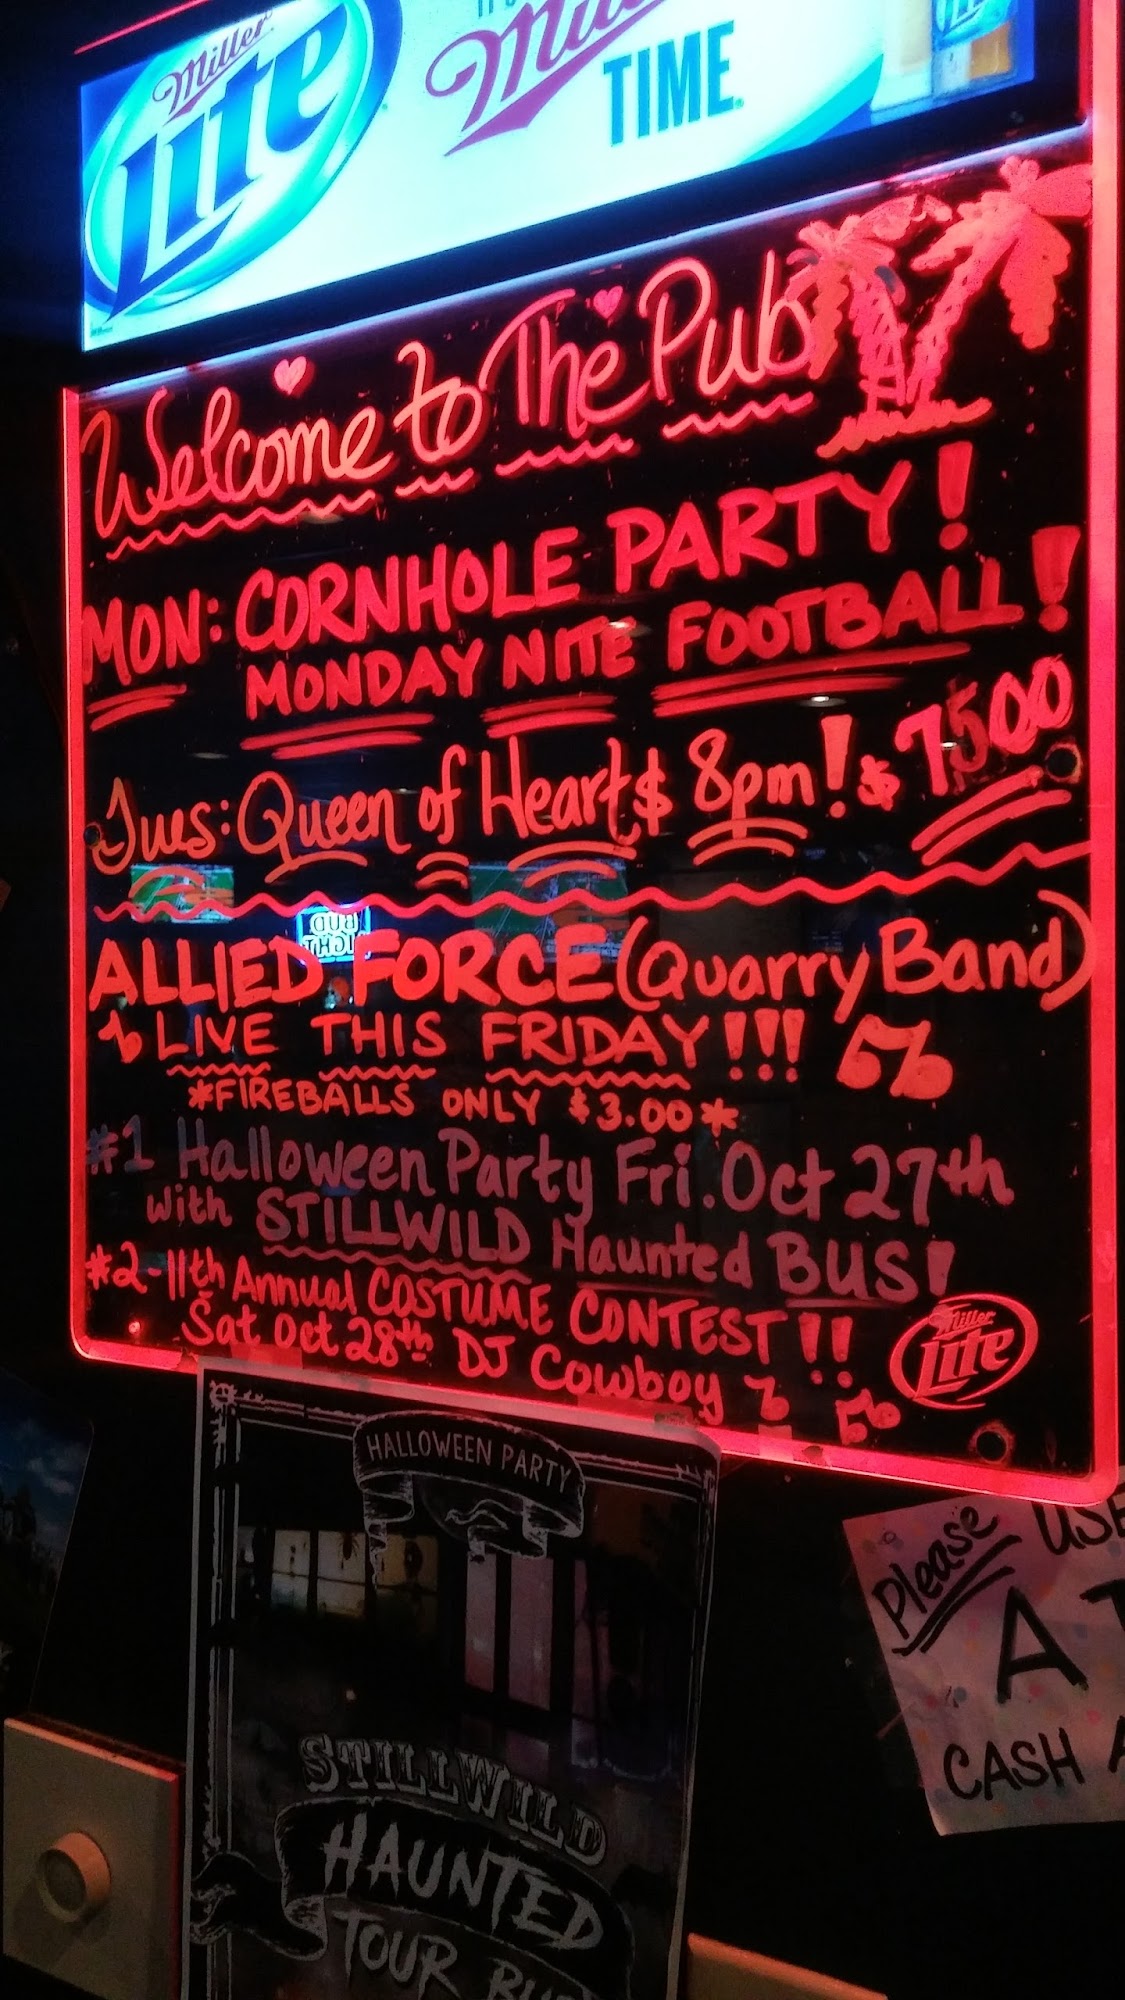 Miller
Lite
Miller
TIME
Welcome to The Pub
MON: CORNHOLE PARTY!
MONDAY NITE FOOTBALL!
Tues: Queen of Heart$ 8pm! $7500
BUD
LIGHT
ALLIED FORCE (Quarry Band)
LIVE THIS FRIDAY!!!
*FIREBALLS ONLY $3.00*
#1 Halloween Party Fri. Oct 27th
with STILLWILD Haunted BUS!
#2-11th Annual COSTUME CONTEST!!
Sat Oct 28th DJ Cowboy
Miller
Lite
HALLOWEEN PARTY
STILLWILD
HAUNTED
TOUR BUS
Please USE
A
CASH